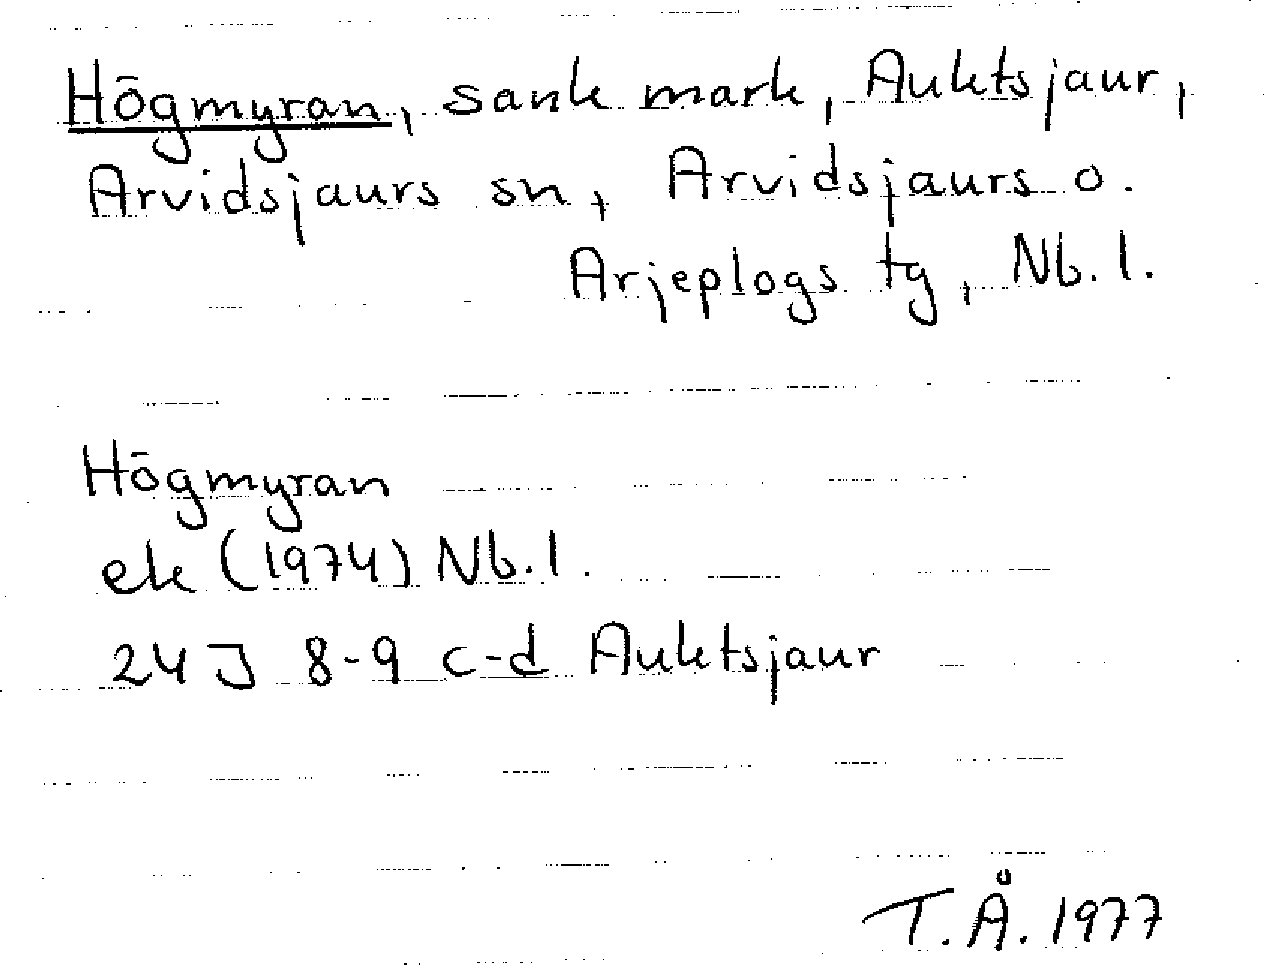 Högmyran, sank mark, Auktsjaur,
Arvidsjaurs sn, Arvidsjaurs o.
Arjeplogs tg, Nb. l.
Högmyran
ek (1974) Nb. l.
24 J 8-9 c-d Auktsjaur
T. Å. 1977